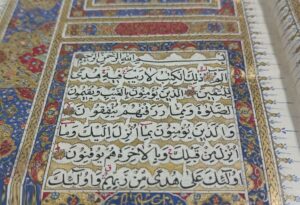 بسم الله الرحمن الرحيم
الم ذلك الكتاب لا ريب فيه هدى
للمتقين الذين يؤمنون بالغيب ويقيمون
الصلوة ومما رزقناهم ينفقون
والذين يؤمنون بما انزل اليك وما
انزل من قبلك وبالاخرة هم يوقنون
اولئك على هدى من ربهم واولئك